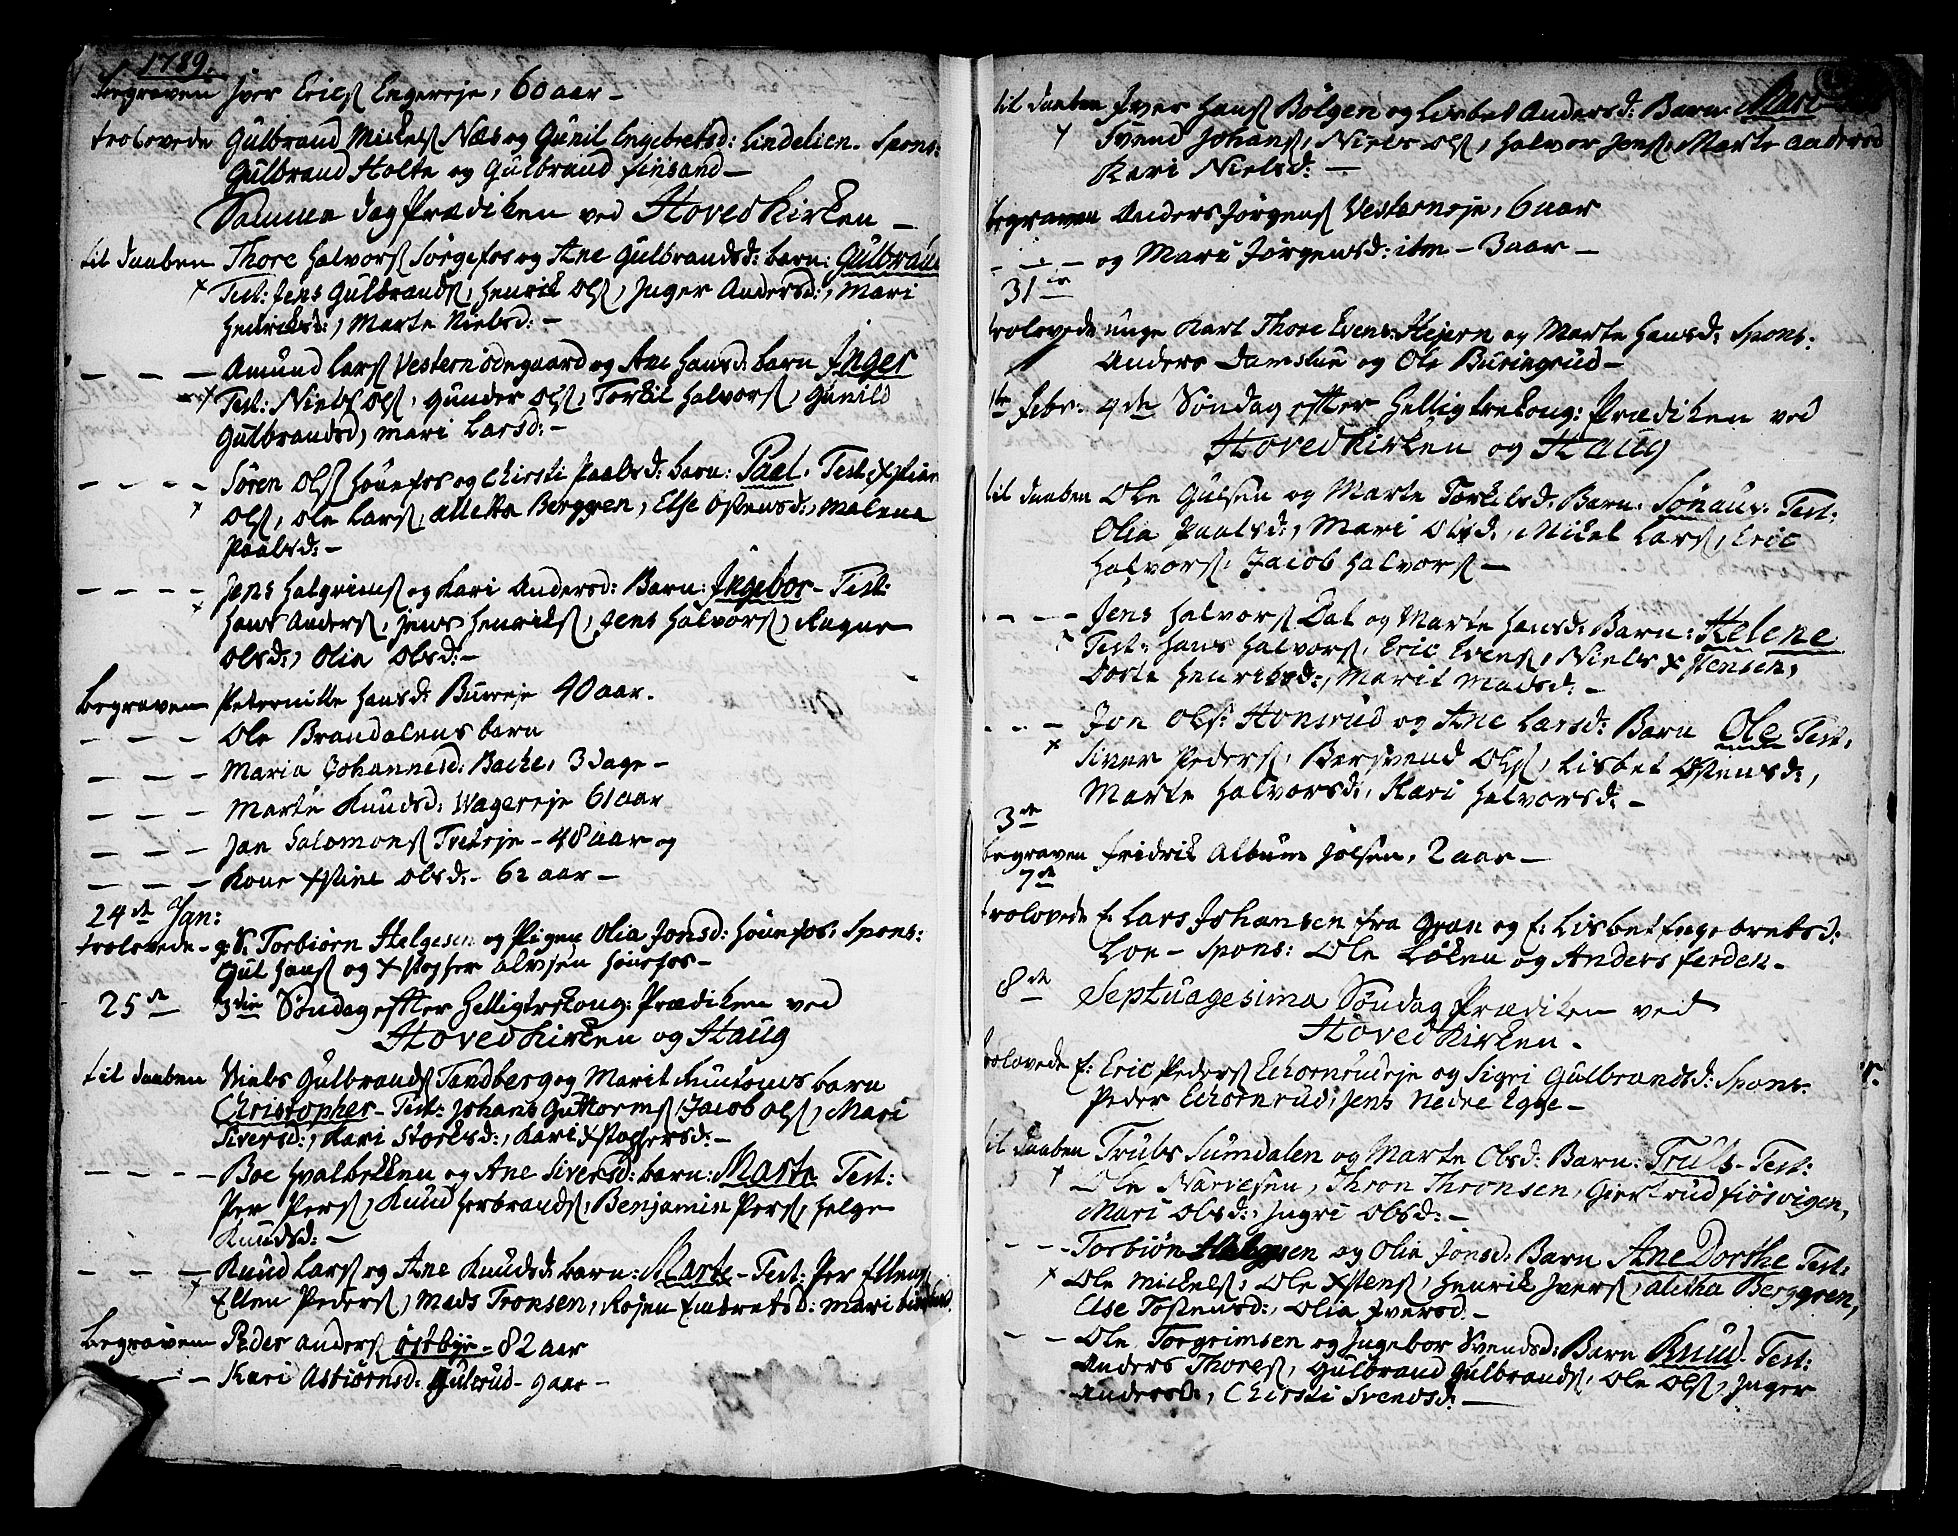 1789.
begraven Iver Ericſ Engereje, 60 aar –
trolovede Gulbrand Mickelſ Næs og Gunil Engebretsd: Lindelien. Spons:
Gulbrand Holte og Gulbrand Finsand –
Samme dag Prædiken ved Hoved Kirken –
til daaben Thore Halvorſ Sörgefos og Ane Gulbrandsd: barn: Gulbrand
x Test: Jens Gulbrandſ, Henrik Olſ, Inger Andersd:, Mari
Henriksd:, Marte Nielsd: –
– – – Amund Larſ Vesternödegaard og Ane Hansd: barn Inger
x Test: Niels Olſ, Gunder Olſ, Torkil Halvorſ, Gunild
Gulbrandsd, Mari Larsd: –
– – – – Sören Olſ Hönefos og Chirsti Paalsd: barn: Paal. Test: Xstian
x Olſ, Ole Larſ, Alletta Berggren, Else Östensd:, Malena
Paalsd: –
– – – – Jens Halgrimſ og Kari Andersd: Barn: Ingebor – Test:
x Hans Anderſ, Jens Henrikſ, Jens Halvorſ, Ragne
Olsd:, Olia Olsd: –
begraven Peternille Hansd: Bureje 40 aar.
– – – Ole Brandalens barn
– – – Maria Johannesd: Bache, 3 dage –
– – – Marte Knudsd: Wagereje 61 aar
– – – Jan Salomonſ Treteje – 48 aar og
– – – Kone Xstine Olsd: – 62 aar –
24de Jan:
trolovede – g: S. Torbiörn Helgesen og Pigen Olia Jonsd: Hönefos: Spons:
Gul Hanſ og Xstopher Alvsen Hönefos –
25de 3die Söndag efter Helligtrekong: Prædiken ved
Hoved Kirken og Haug
til daaben Niels Gulbrandſ Tandberg og Marit Knutsms barn
Christopher – Test: Johans Guttormſ, Jacob Olſ, Mari
Siversd:, Kari Storksd:, Kari Xstophersd: –
– – – – Boe Hvalbekken og Ane Siversd: barn: Marte Test:
Per Perſ, Knud Herbrandſ, Benjamin Perſ, Helge
Knudsd: –
– – – – Knud Larſ og Ane Knudsd: barn: Marte – Test: Per Ellens
x Ellen Pederſ, Mads Tronsen, Rosen Embretsd: Mari
begraven Peder Anderſ östbye – 82 aar
– – Kari Astiörnsd: Gulerud – 9 aar –
til daaben Iver Hanſ Bölgen og Lisbet Andersd: Barn: Mari
x Svend Johanſ, Niels Olſ, Halvor Jenſ, Marte Andersd
Kari Nielsd: –
begraven Anders Jörgenſ Vesterneje, 6 aar
– – – og Mari Jörgensd: ibm – 3 aar –
31te
trolovede unge Karl Thore Evens: Hejern og Marte Hansd: Spons:
Anders Damstue og Ole Buringrud –
1te Febr: 4de Söndag efter Helligtrekong: Prædiken ved
Hoved Kirken og Haug
til daaben Ole Gulsen og Marte Torkelsd: Barn: Sönaus. Test:
Olia Paalsd:, Mari Olsd:, Mikel Larſ, Eric
Halvorſ, Jacob Halvorſ –
– – – – Jens Halvorſ Dal og Marte Hansd: Barn: Helene
x Test: Hans Halvorſ, Eric Evenſ, Niels Xstensen,
Dorte Henriksd:, Marit Madsd: –
– – – Jon Ols: Honsrud og Ane Larsd: Barn Ole Test:
x Siver Pederſ, Bersvend Olſ, Lisbet Östensd:,
Marte Halvorsd:, Kari Halvorsd: –
3de
begraven Fridrik Album Jölsen, 2 aar –
7de
trolovede f: Lars Johansen fra Gran og f: Lisbet Engebretsd:
Loe – Spons: Ole Löken og Anders Ferden –
8de Septuagesima Söndag Prædiken ved
Hoved Kirken –
trolovede f: Eric Pederſ Echornrudeje og Sigri Gulbrandsd: Spons:
Peder Echornrud, Jens Nedre Egge –
til daaben Truls Sumdalen og Marte Olsd: Barn: Truls – Test:
x Ole Narvesen, Thron Thronsen, Giertrud Fiösvigen,
Mari Olsd:, Ingri Olsd: –
– – – Torbiön Helgesen og Olia Jonsd: Barn Ane Dorthe Test:
x Ole Mickelſ, Ole Xstenſ, Henrik Iverſ, Aletha Berggren,
Else Tostensd:, Olia Iversd: –
– – – Ole Torgrimsen og Ingebor Svendsd: Barn Knud – Test:
Anders Thoreſ, Gulbrand Gulbrandſ, Ole Olſ, Inger
Andersd:, Chirsti Svendsd: –